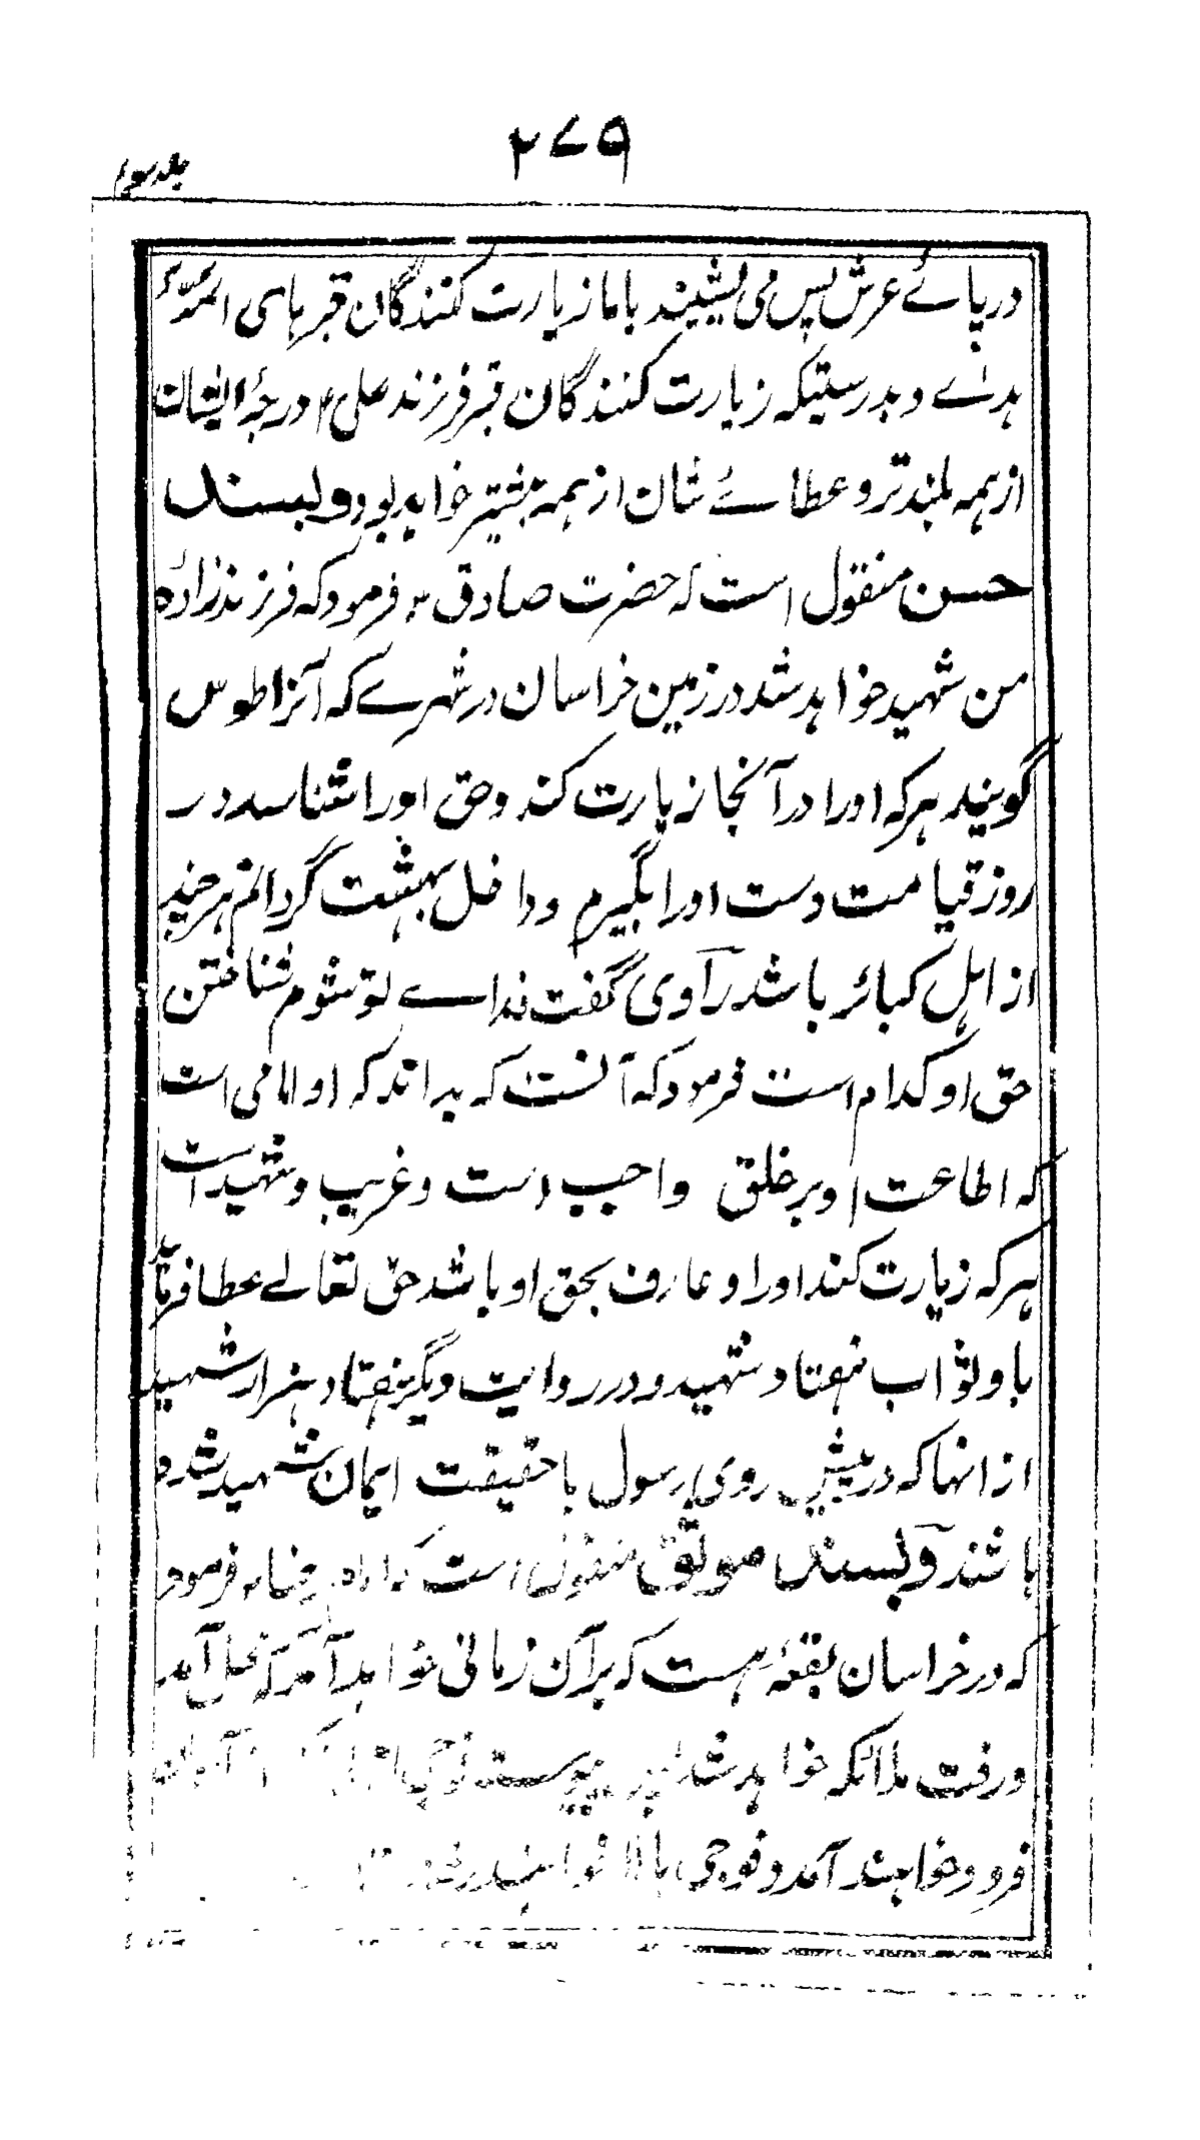 ۲۷۹
جلد سوم
در پائے عرش پس می نشیند با ما زیارت کنندگان قبرہای ائمہ
ہدے و بدرستیکہ زیارت کنندگان قبر فرزند علی ؑ درجۂ ایشان
از ہمہ بلندتر و عطائے شان از ہمہ بیشتر خواہد بود و بسند
حسن منقول است کہ حضرت صادق ؑ فرمود کہ فرزند زادہ
من شہید خواہد شد در زمین خراسان در شہرے کہ آنرا طوس
گویند ہر کہ اورا در آنجا زیارت کند و حق اورا شناسد در
روز قیامت دست اورا بگیرم و داخل بہشت گردانم ہر چند
از اہل کبائر باشد راوی گفت فداے تو شوم شناختن
حق او کدام است فرمود کہ آنست کہ بداند کہ او امامی است
کہ اطاعت او بر خلق واجب است و غریب و شہید است
ہر کہ زیارت کند اورا و عارف بحق او باشد حق تعالے عطا فرماید
باو ثواب ہفتاد شہید و در روایت دیگر ہفتاد ہزار شہید
از انہا کہ در پیش روی رسول با حقیقت ایمان شہید شدہ
باشند و بسند موثق منقول است کہ امام رضا ؑ فرمود
کہ در خراسان بقعۂ ہست کہ بر آن زمانی خواہد آمد کہ محل آمد
و رفت ملائکہ خواہد شد پیوستہ فوجی از آسمان
فرود خواہند آمد و فوجی بالا خواہند رفت